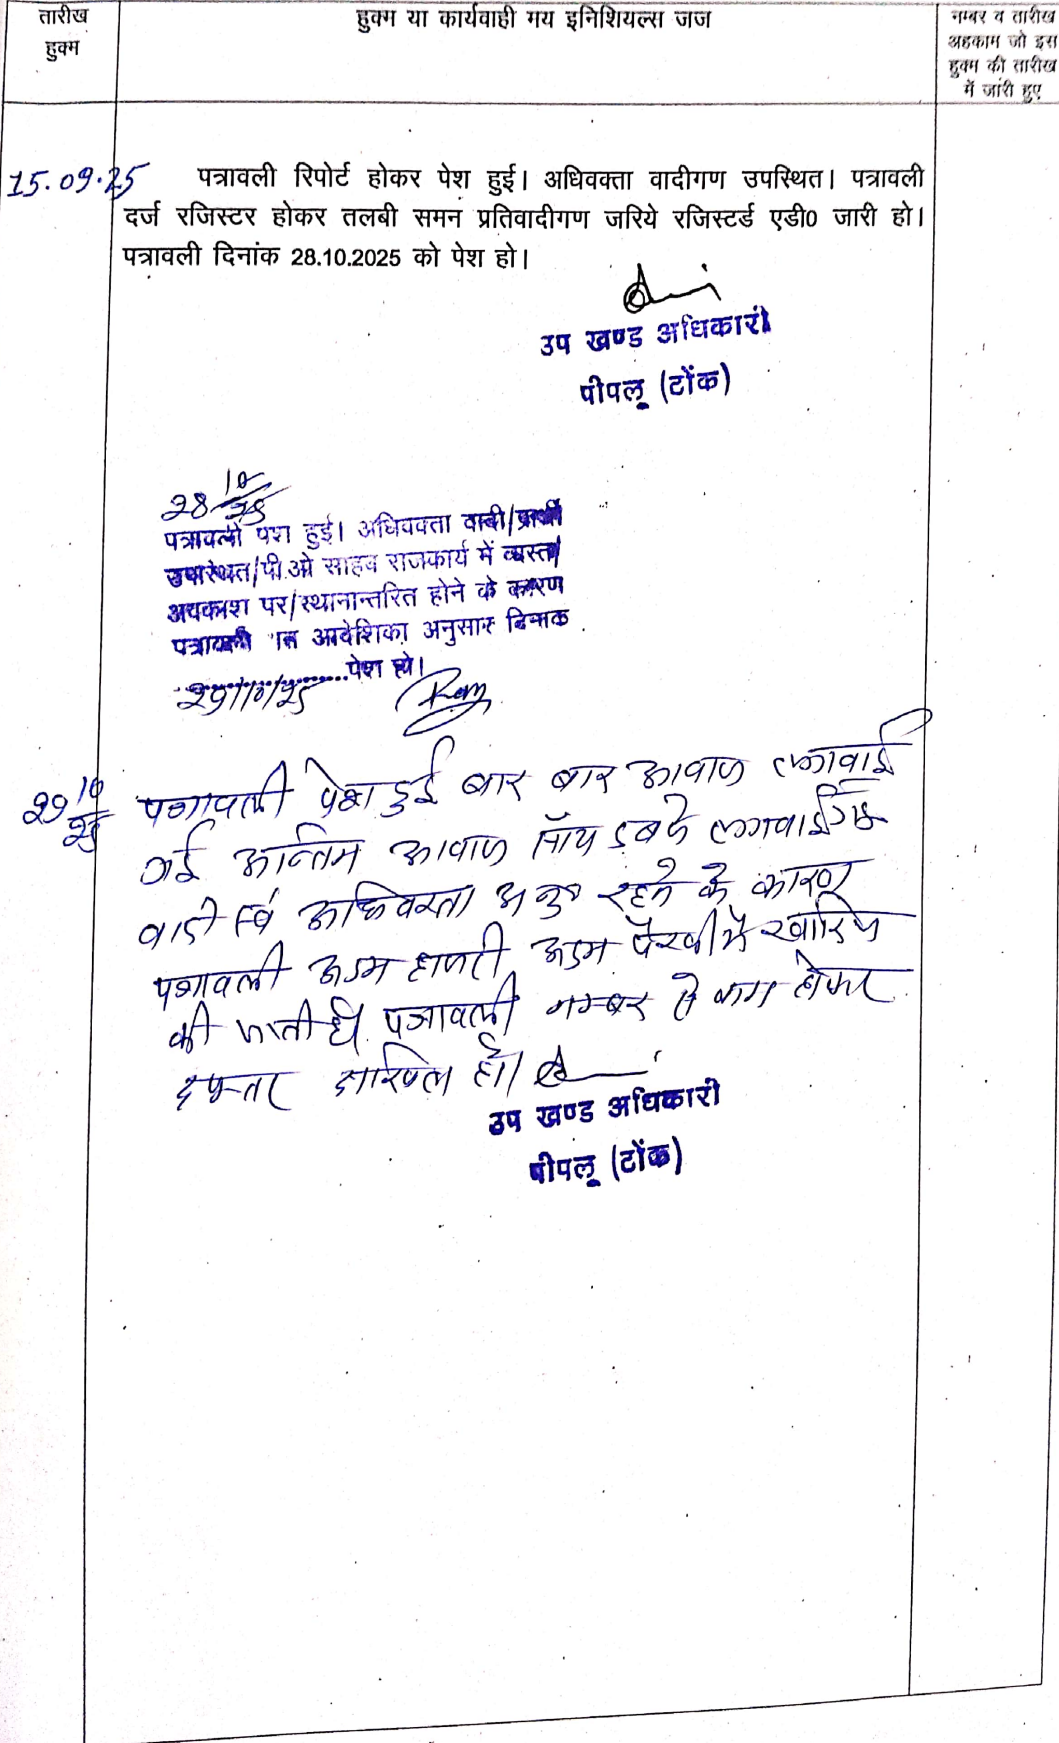 तारीख
हुक्म
हुक्म या कार्यवाही मय इनिशियल्स जज
नम्बर व तारीख
अहकाम जो इस
हुक्म की तारीख
में जारी हुए
15.09.25
पत्रावली रिपोर्ट होकर पेश हुई। अधिवक्ता वादीगण उपस्थित। पत्रावली
दर्ज रजिस्टर होकर तलबी समन प्रतिवादीगण जरिये रजिस्टर्ड एडी0 जारी हो।
पत्रावली दिनांक 28.10.2025 को पेश हो।
उप खण्ड अधिकारी
पीपलू (टोंक)
28 10/25
पत्रावली पेश हुई। अधिवक्ता वादी/प्रार्थी
उपस्थित/पी.ओ साहब राजकार्य में व्यस्त/
अवकाश पर/स्थानान्तरित होने के कारण
पत्रावली आदेशिका अनुसार दिनांक
29/10/25 पेश हो।
29 10/25
पत्रावली पेश हुई बार बार आवाज लगवाई
गई अन्तिम आवाज लगवाई गई
वादी एवं अधिवक्ता अनु रहने के कारण
पत्रावली अदम हाजरी अदम पैरवी में खारिज
की जाती है पत्रावली नम्बर से कम होकर
दफ्तर दाखिल हो।
उप खण्ड अधिकारी
पीपलू (टोंक)